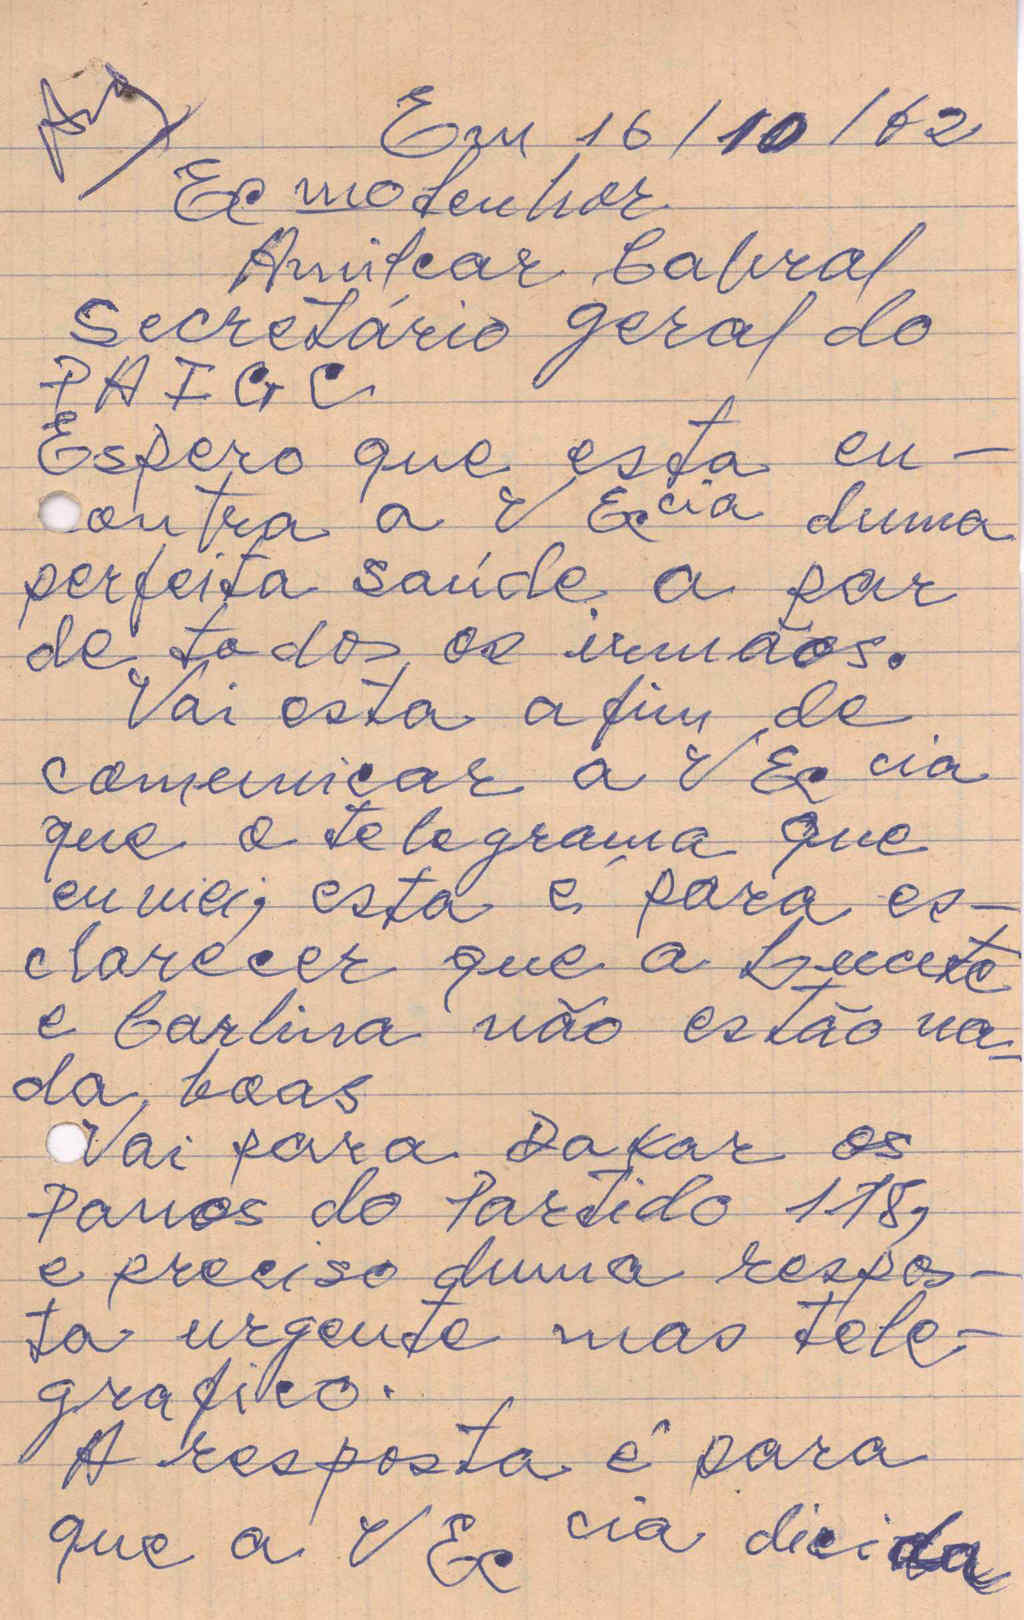 Em 16/10/62
Ecmo Senhor
Amilcar Cabral
Secretário geral do
PAIGC
Espero que esta en-
contra a V Eccia duma
perfeita saúde a par
de todos os irmãos.
Vai esta afim de
comunicar a V Ec cia
que o telegrama que
enviei, esta é para es-
clarecer que a
e Carlina não estão na-
da boas
Vai para Dakar os
Panos do Partido 118,
e preciso duma respos-
ta urgente mas tele-
grafico.
A resposta é para
que a V Ec cia dicida